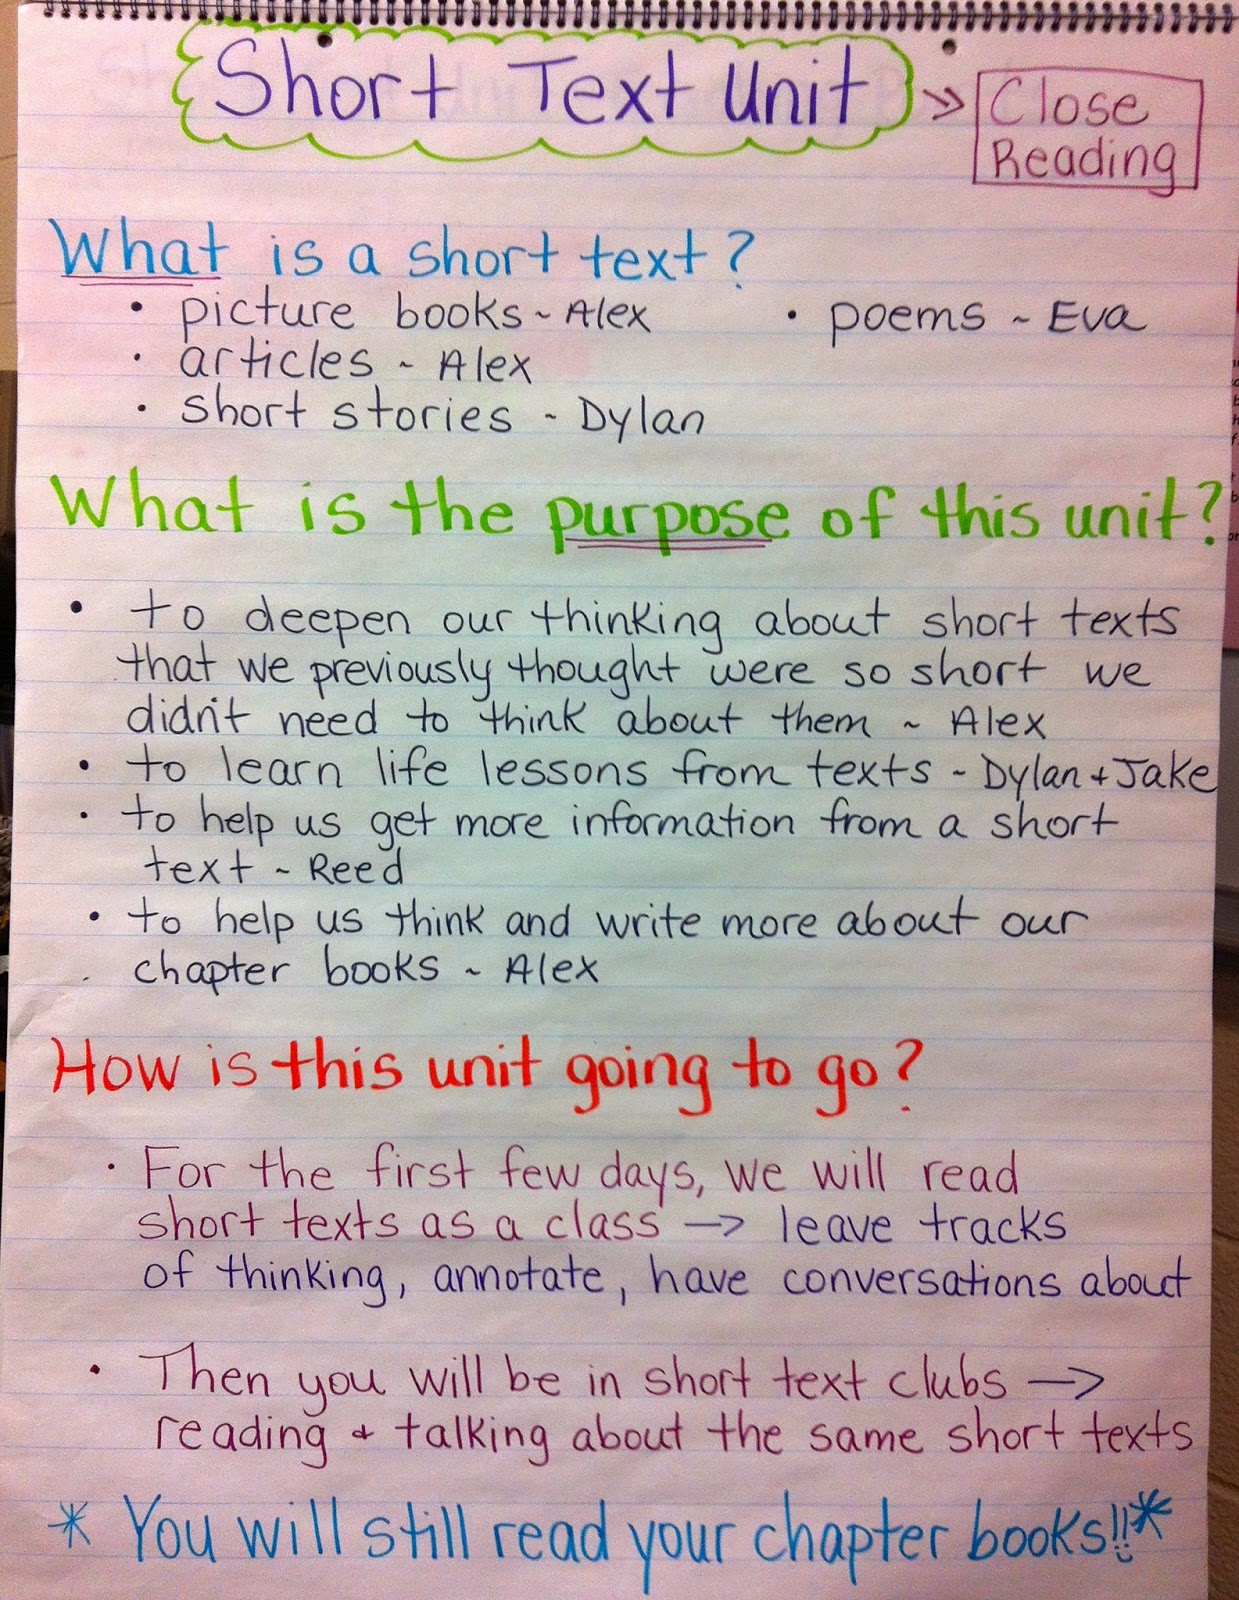 Short Text Unit → Close
Reading
What is a short text?
• picture books ~ Alex • poems ~ Eva
• articles ~ Alex
• short stories ~ Dylan
What is the purpose of this unit?
• to deepen our thinking about short texts
that we previously thought were so short we
didn't need to think about them ~ Alex
• to learn life lessons from texts ~ Dylan + Jake
• to help us get more information from a short
text ~ Reed
• to help us think and write more about our
chapter books ~ Alex
How is this unit going to go?
• For the first few days, we will read
short texts as a class → leave tracks
of thinking, annotate, have conversations about
• Then you will be in short text clubs →
reading + talking about the same short texts
* You will still read your chapter books!! *